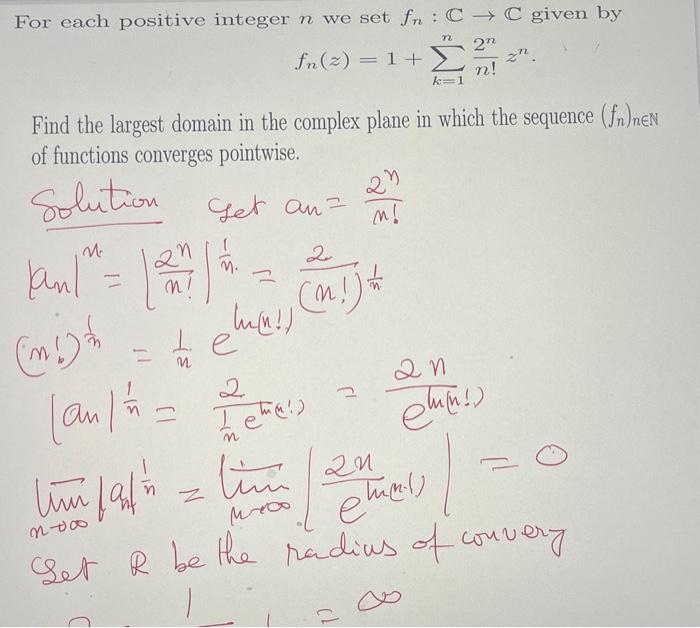 For each positive integer n we set fₙ : ℂ → ℂ given by
fₙ(z) = 1 + ∑ₖ₌₁ⁿ 2ⁿ/n! zⁿ.
Find the largest domain in the complex plane in which the sequence (fₙ)ₙ∈ℕ
of functions converges pointwise.
Solution Let an = 2ⁿ/n!
|an|ⁿ = |2ⁿ/n!|^(1/n) = 2/(n!)^(1/n)
(n!)^(1/n) = 1/n e^(ln(n!))
|an|^(1/n) = 2/(1/n e^(ln(n!))) = 2n/e^(ln(n!))
lim n→∞ |aₙ|^(1/n) = lim n→∞ |2n/e^(ln(n!))| = 0
Let R be the radius of converg
1 = ∞